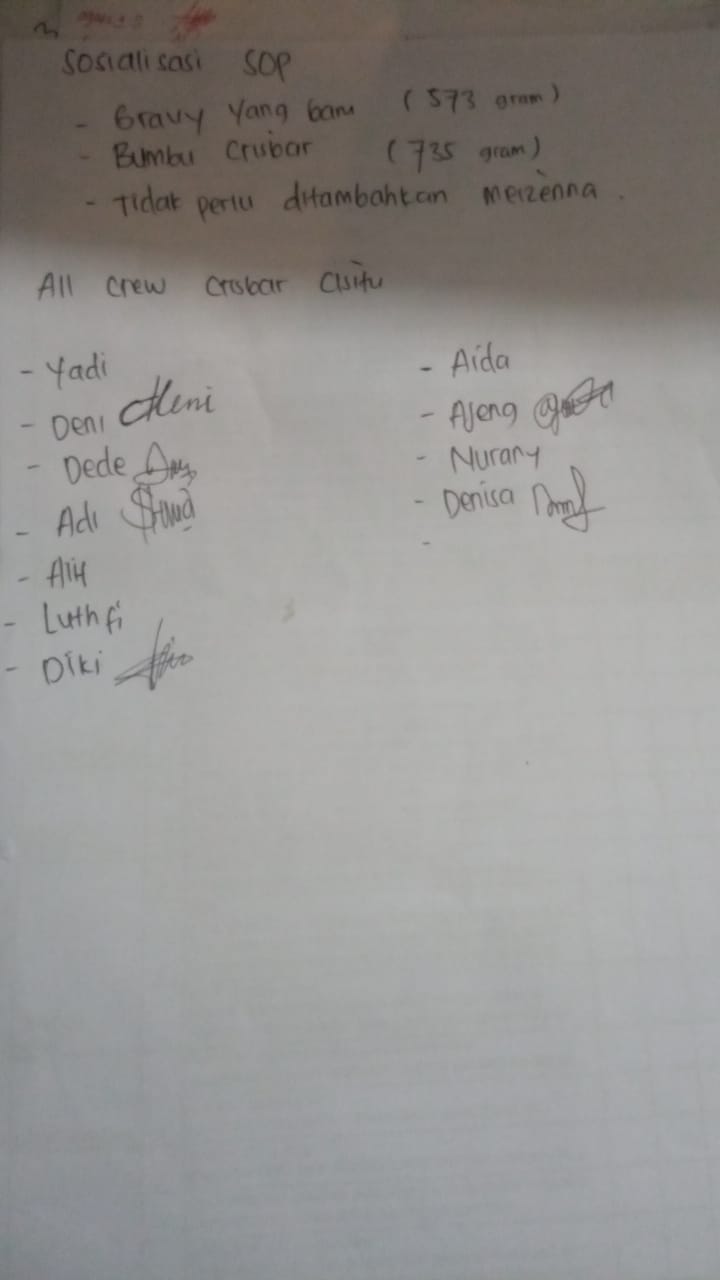 Sosialisasi SOP
- Gravy yang baru (573 gram)
- Bumbu Crisbar (735 gram)
- Tidak perlu ditambahkan meizenna.
All crew crisbar Cisitu
- Yadi
- Deni
- Dede
- Adi
- Alif
- Luthfi
- Diki
- Aida
- Ajeng
- Nurany
- Denisa
-